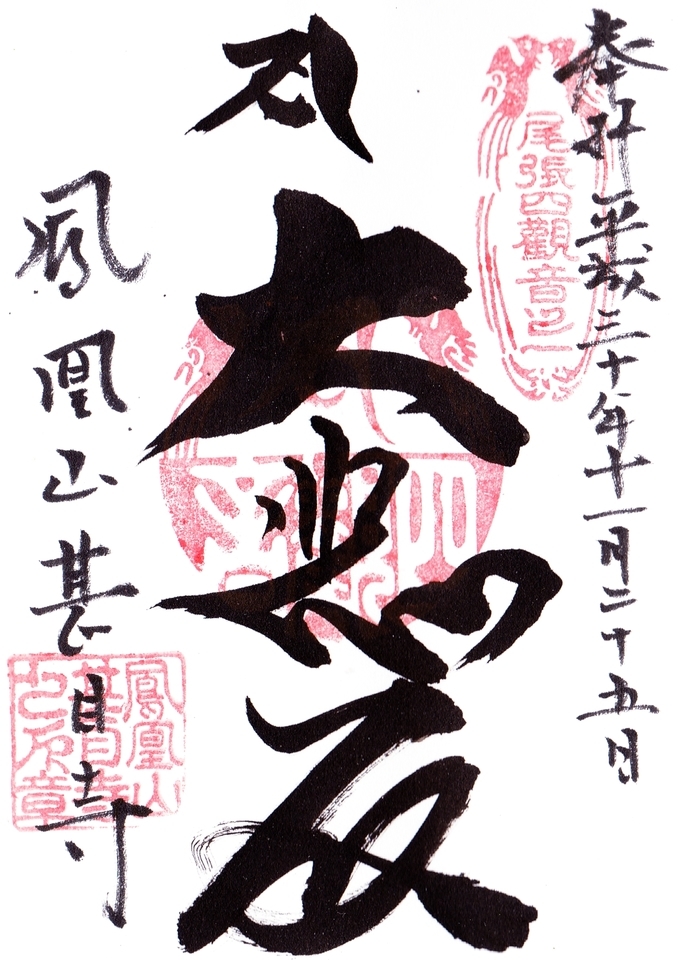 奉拝 平成三十年十一月二十五日
尾張四觀音之一
大悲殿
鳳凰山甚目寺
鳳凰山
甚目寺
之印章